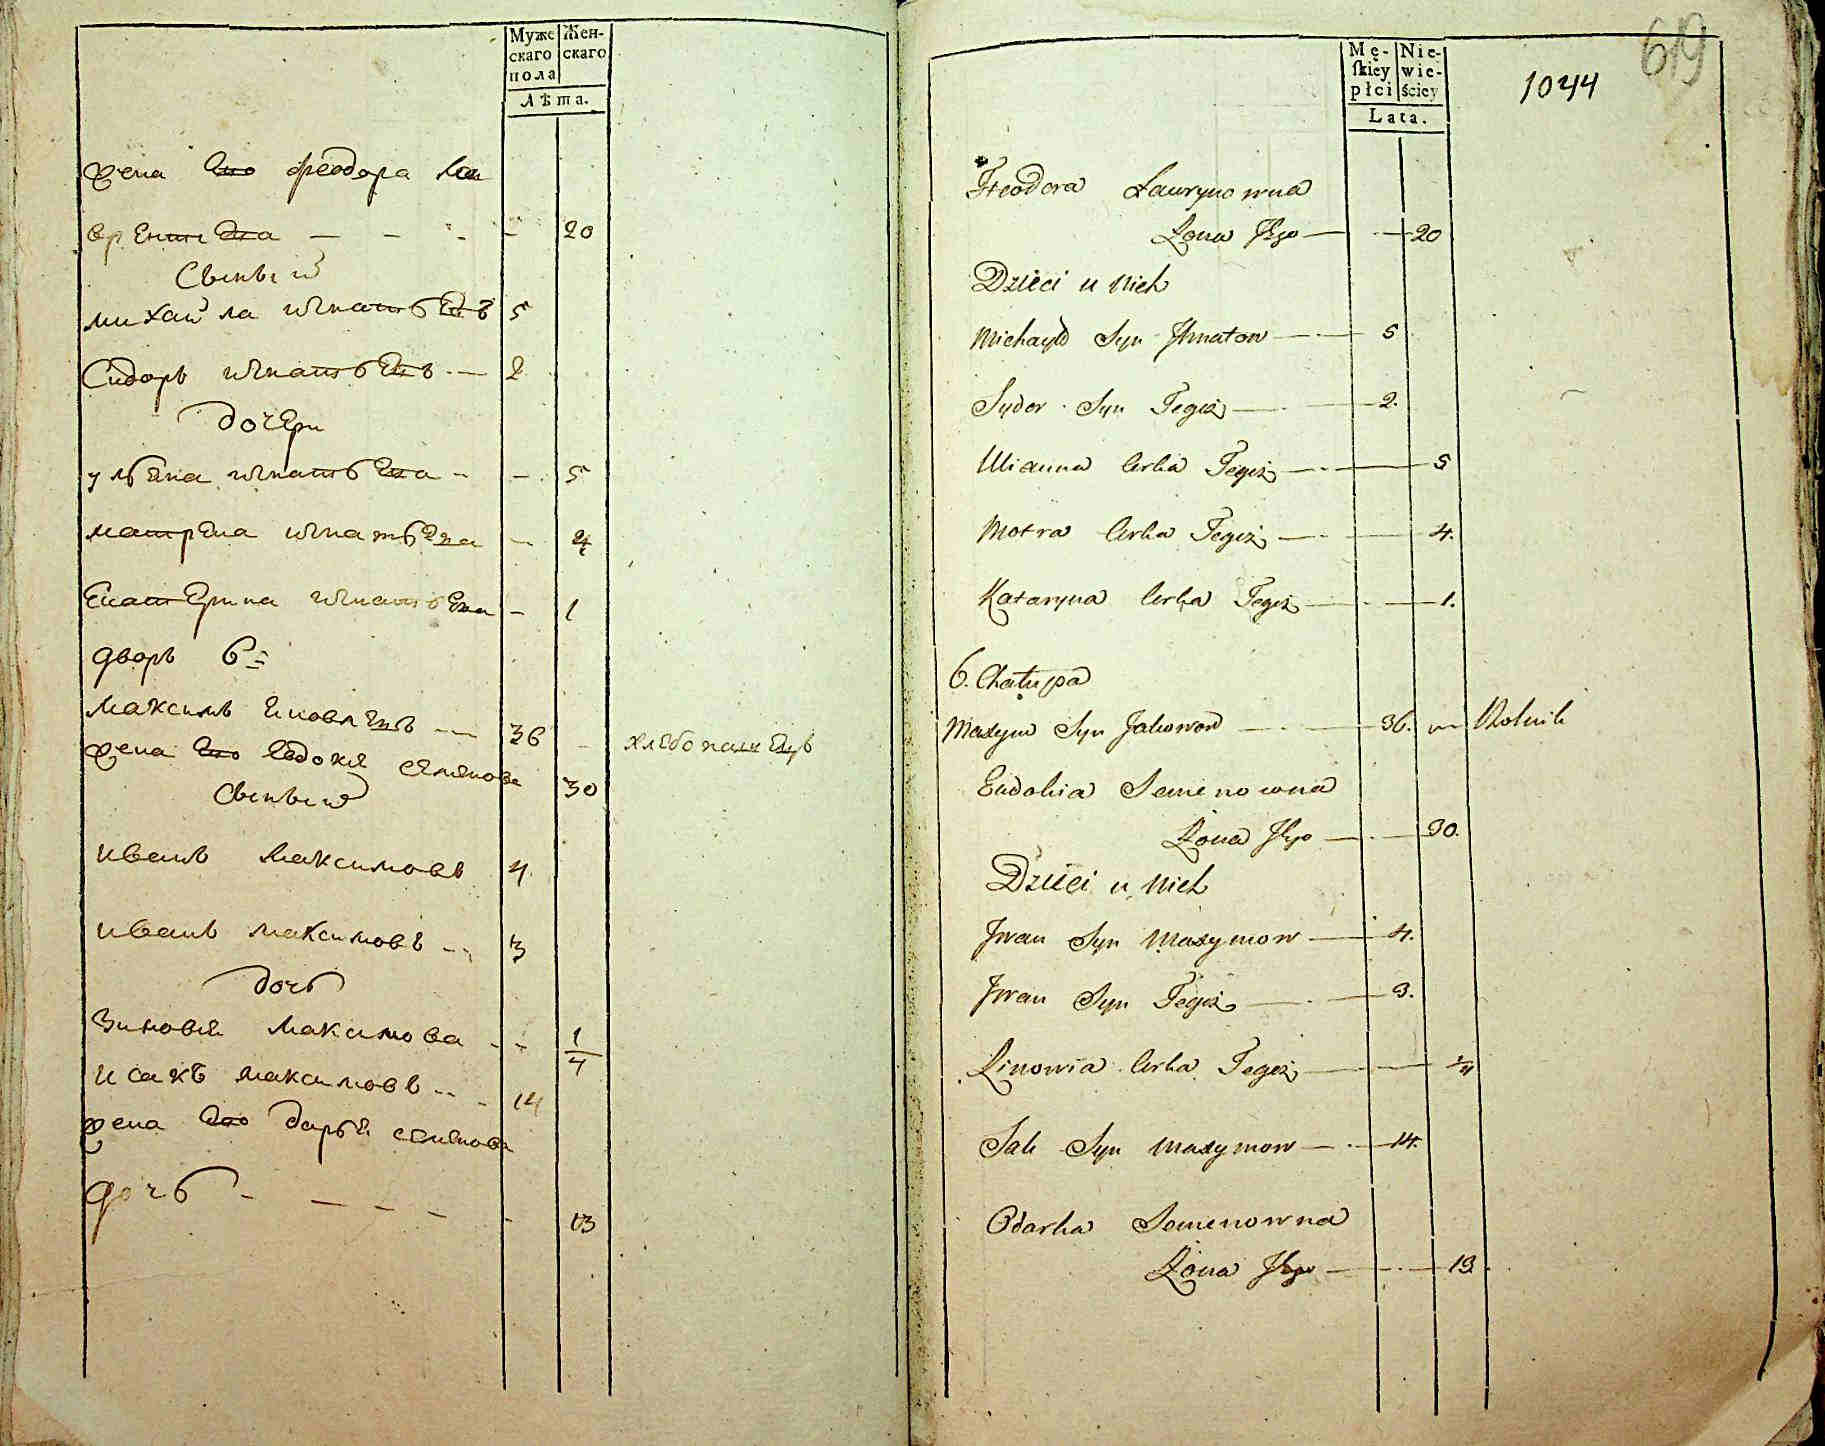 Муже
скаго
пола
Жен-
скаго
Лѣта.
жена Его феодора Ла
врентьева — — - - 20
Сыновьи
михайла игнатьевъ 5
Сидоръ игнатьевъ - — 2
дочери
ульяна игнатьева - - 5
матрена игнатьева - 4
Екатерина игнатьева - 1
дворъ 6 =
максимъ яковлевъ - — 36 - хлебопашецъ
жена Его Евдокия семенова 30
Сыновьи
иванъ максимовъ 4
иванъ максимовъ - - 3
дочь
Зиновия максимова - - 1/4
исакъ максимовъ - - - 14
жена Его дарья семенова
дочь - — — — - 13
Mę-
skiey
płci
Nie-
wie-
ściey
Lata.
619
1044
Fteodora Laurynowna
Żona Jego — — 20
Dzieci u Nich
Michayło Syn Jhnatow — - — 5
Sydor Syn Tegoż — — 2.
Ulianna Corka Tegoż — - — 5
Motra Corka Tegoż — - — 4.
Kataryna Corka Tegoż — - — 1.
6. Chałupa
Maxym Syn Jakowow — - — 36. — Rolnik
Eudokia Semenowna
Żona Jego — - — 30.
Dzieci u Nich
Jwan Syn Maxymow — 4.
Jwan Syn Tegoż — - — 3.
Zinowia Corka Tegoż — — 1/4
Sak Syn Maxymow — - — 14.
Odarka Semenowna
Żona Jego — - — 13.